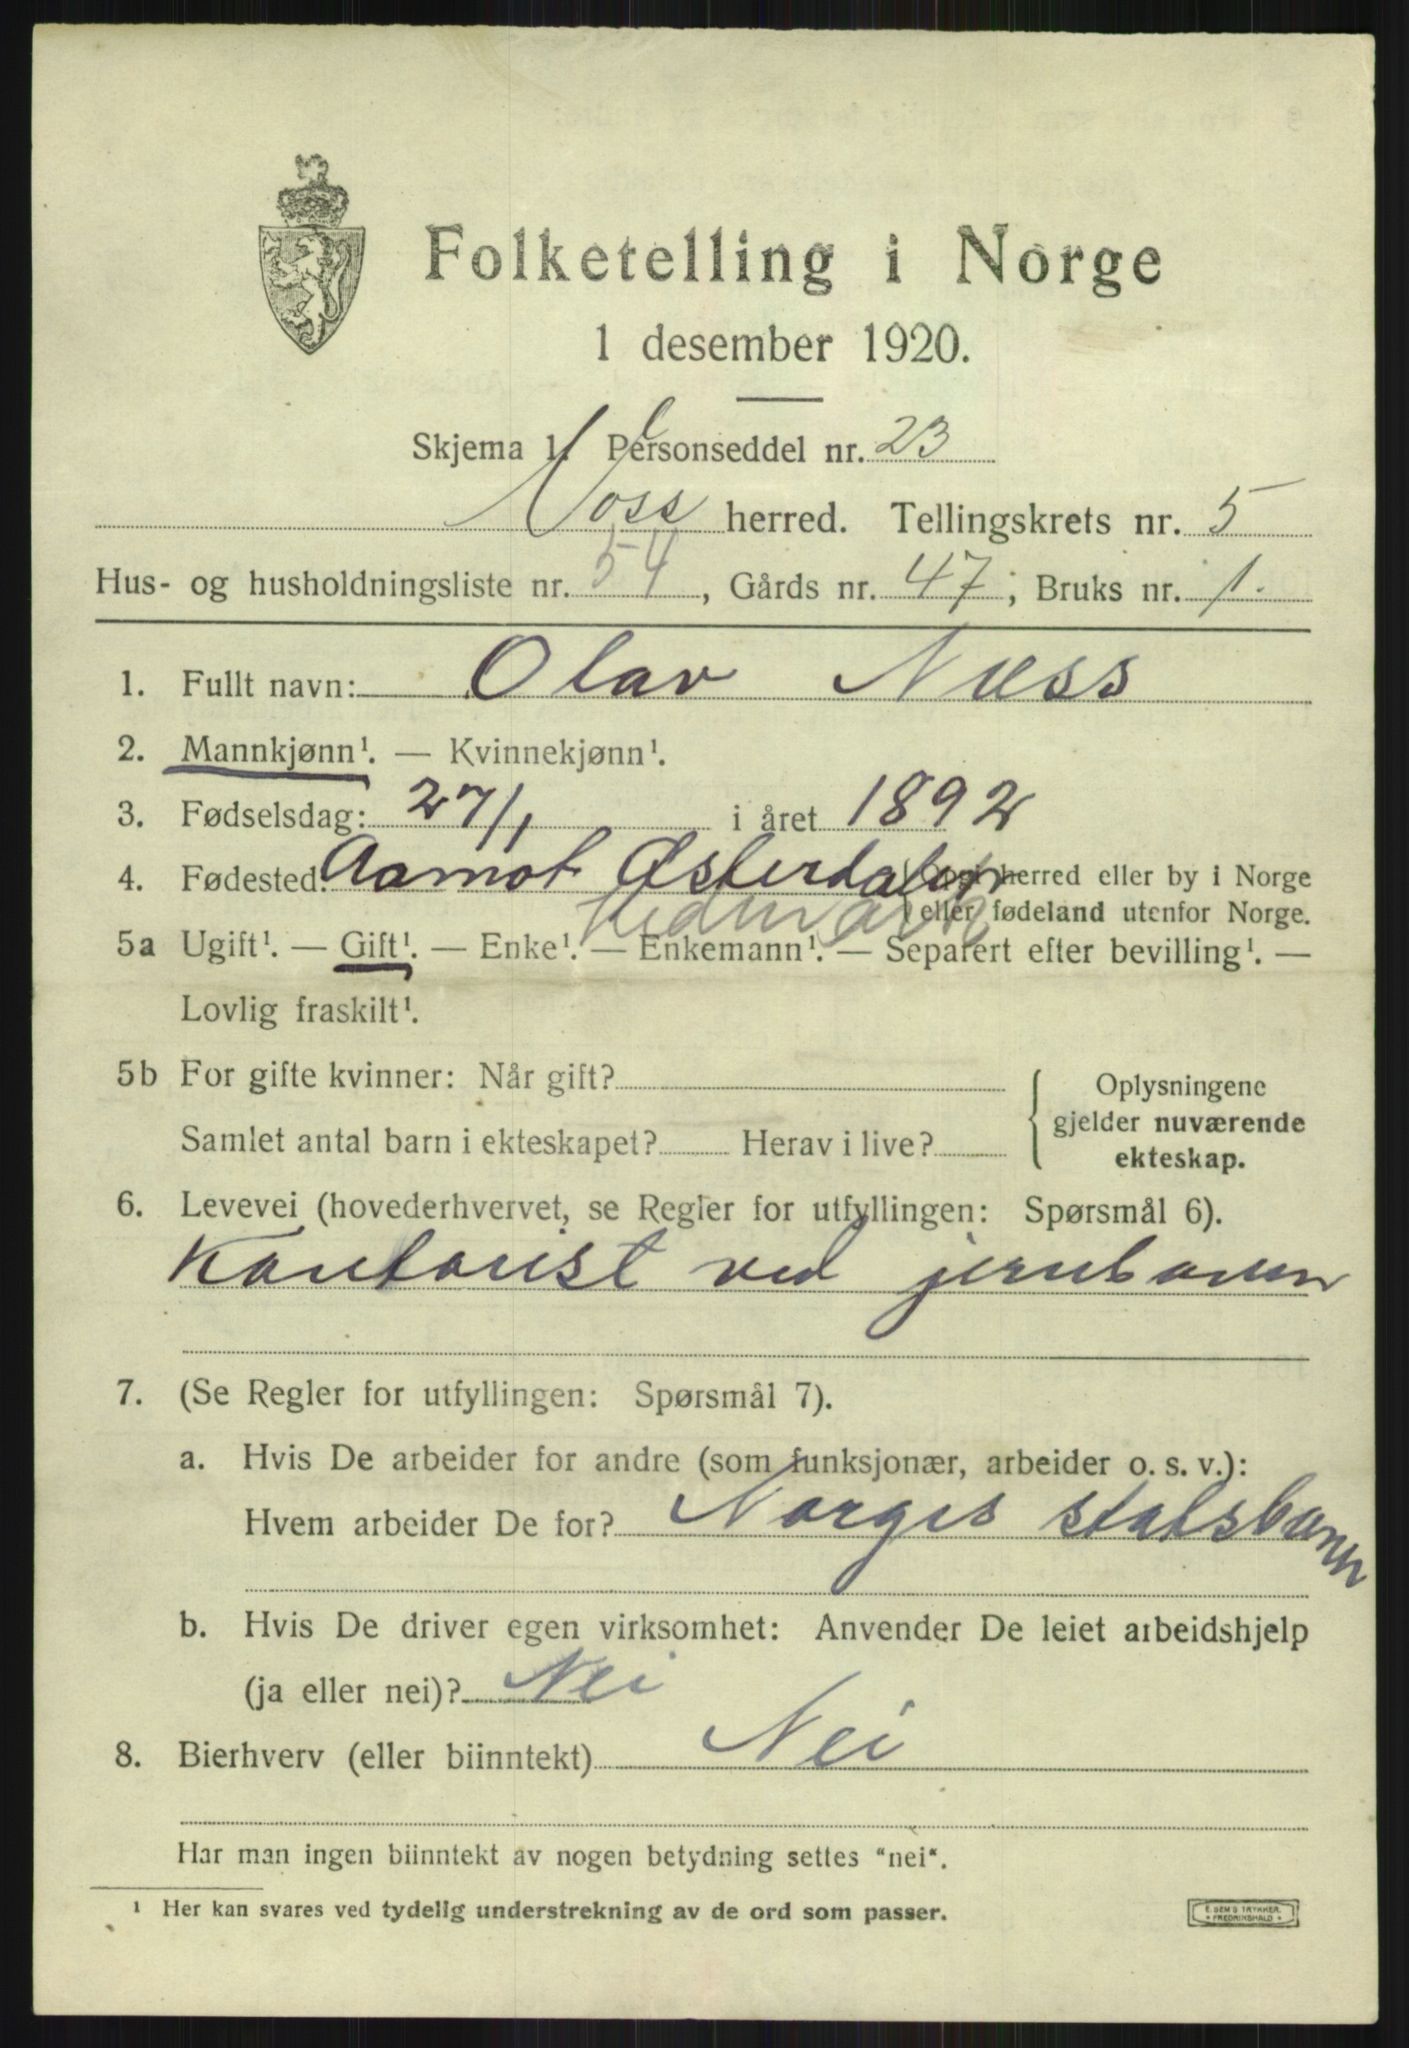 Folketelling i Norge
1 desember 1920.
Skjema 1. Personseddel nr. 23
Voss herred. Tellingskrets nr. 5
Hus- og husholdningsliste nr. 54, Gårds nr. 47; Bruks nr. 1.
1. Fullt navn: Olav Næss
2. Mannkjønn¹. — Kvinnekjønn¹.
3. Fødselsdag: 27/1 i året 1892
4. Fødested: Aamot Østerdalen (Opgi herred eller by i Norge
Hedmark eller fødeland utenfor Norge.
5a Ugift¹. — Gift¹. — Enke¹. — Enkemann¹. — Separert efter bevilling¹. —
Lovlig fraskilt¹.
5b For gifte kvinner: Når gift? Oplysningene
gjelder nuværende
Samlet antal barn i ekteskapet? Herav i live? ekteskap.
6. Levevei (hovederhvervet, se Regler for utfyllingen: Spørsmål 6).
Kontorist ved jernbanen
7. (Se Regler for utfyllingen: Spørsmål 7).
a. Hvis De arbeider for andre (som funksjonær, arbeider o. s. v.):
Hvem arbeider De for? Norges statsbaner
b. Hvis De driver egen virksomhet: Anvender De leiet arbeidshjelp
(ja eller nei)? Nei
8. Bierhverv (eller biinntekt) Nei
Har man ingen biinntekt av nogen betydning settes "nei".
¹ Her kan svares ved tydelig understrekning av de ord som passer.
E. SEM'S TRYKKER.
FREDRIKSHALD